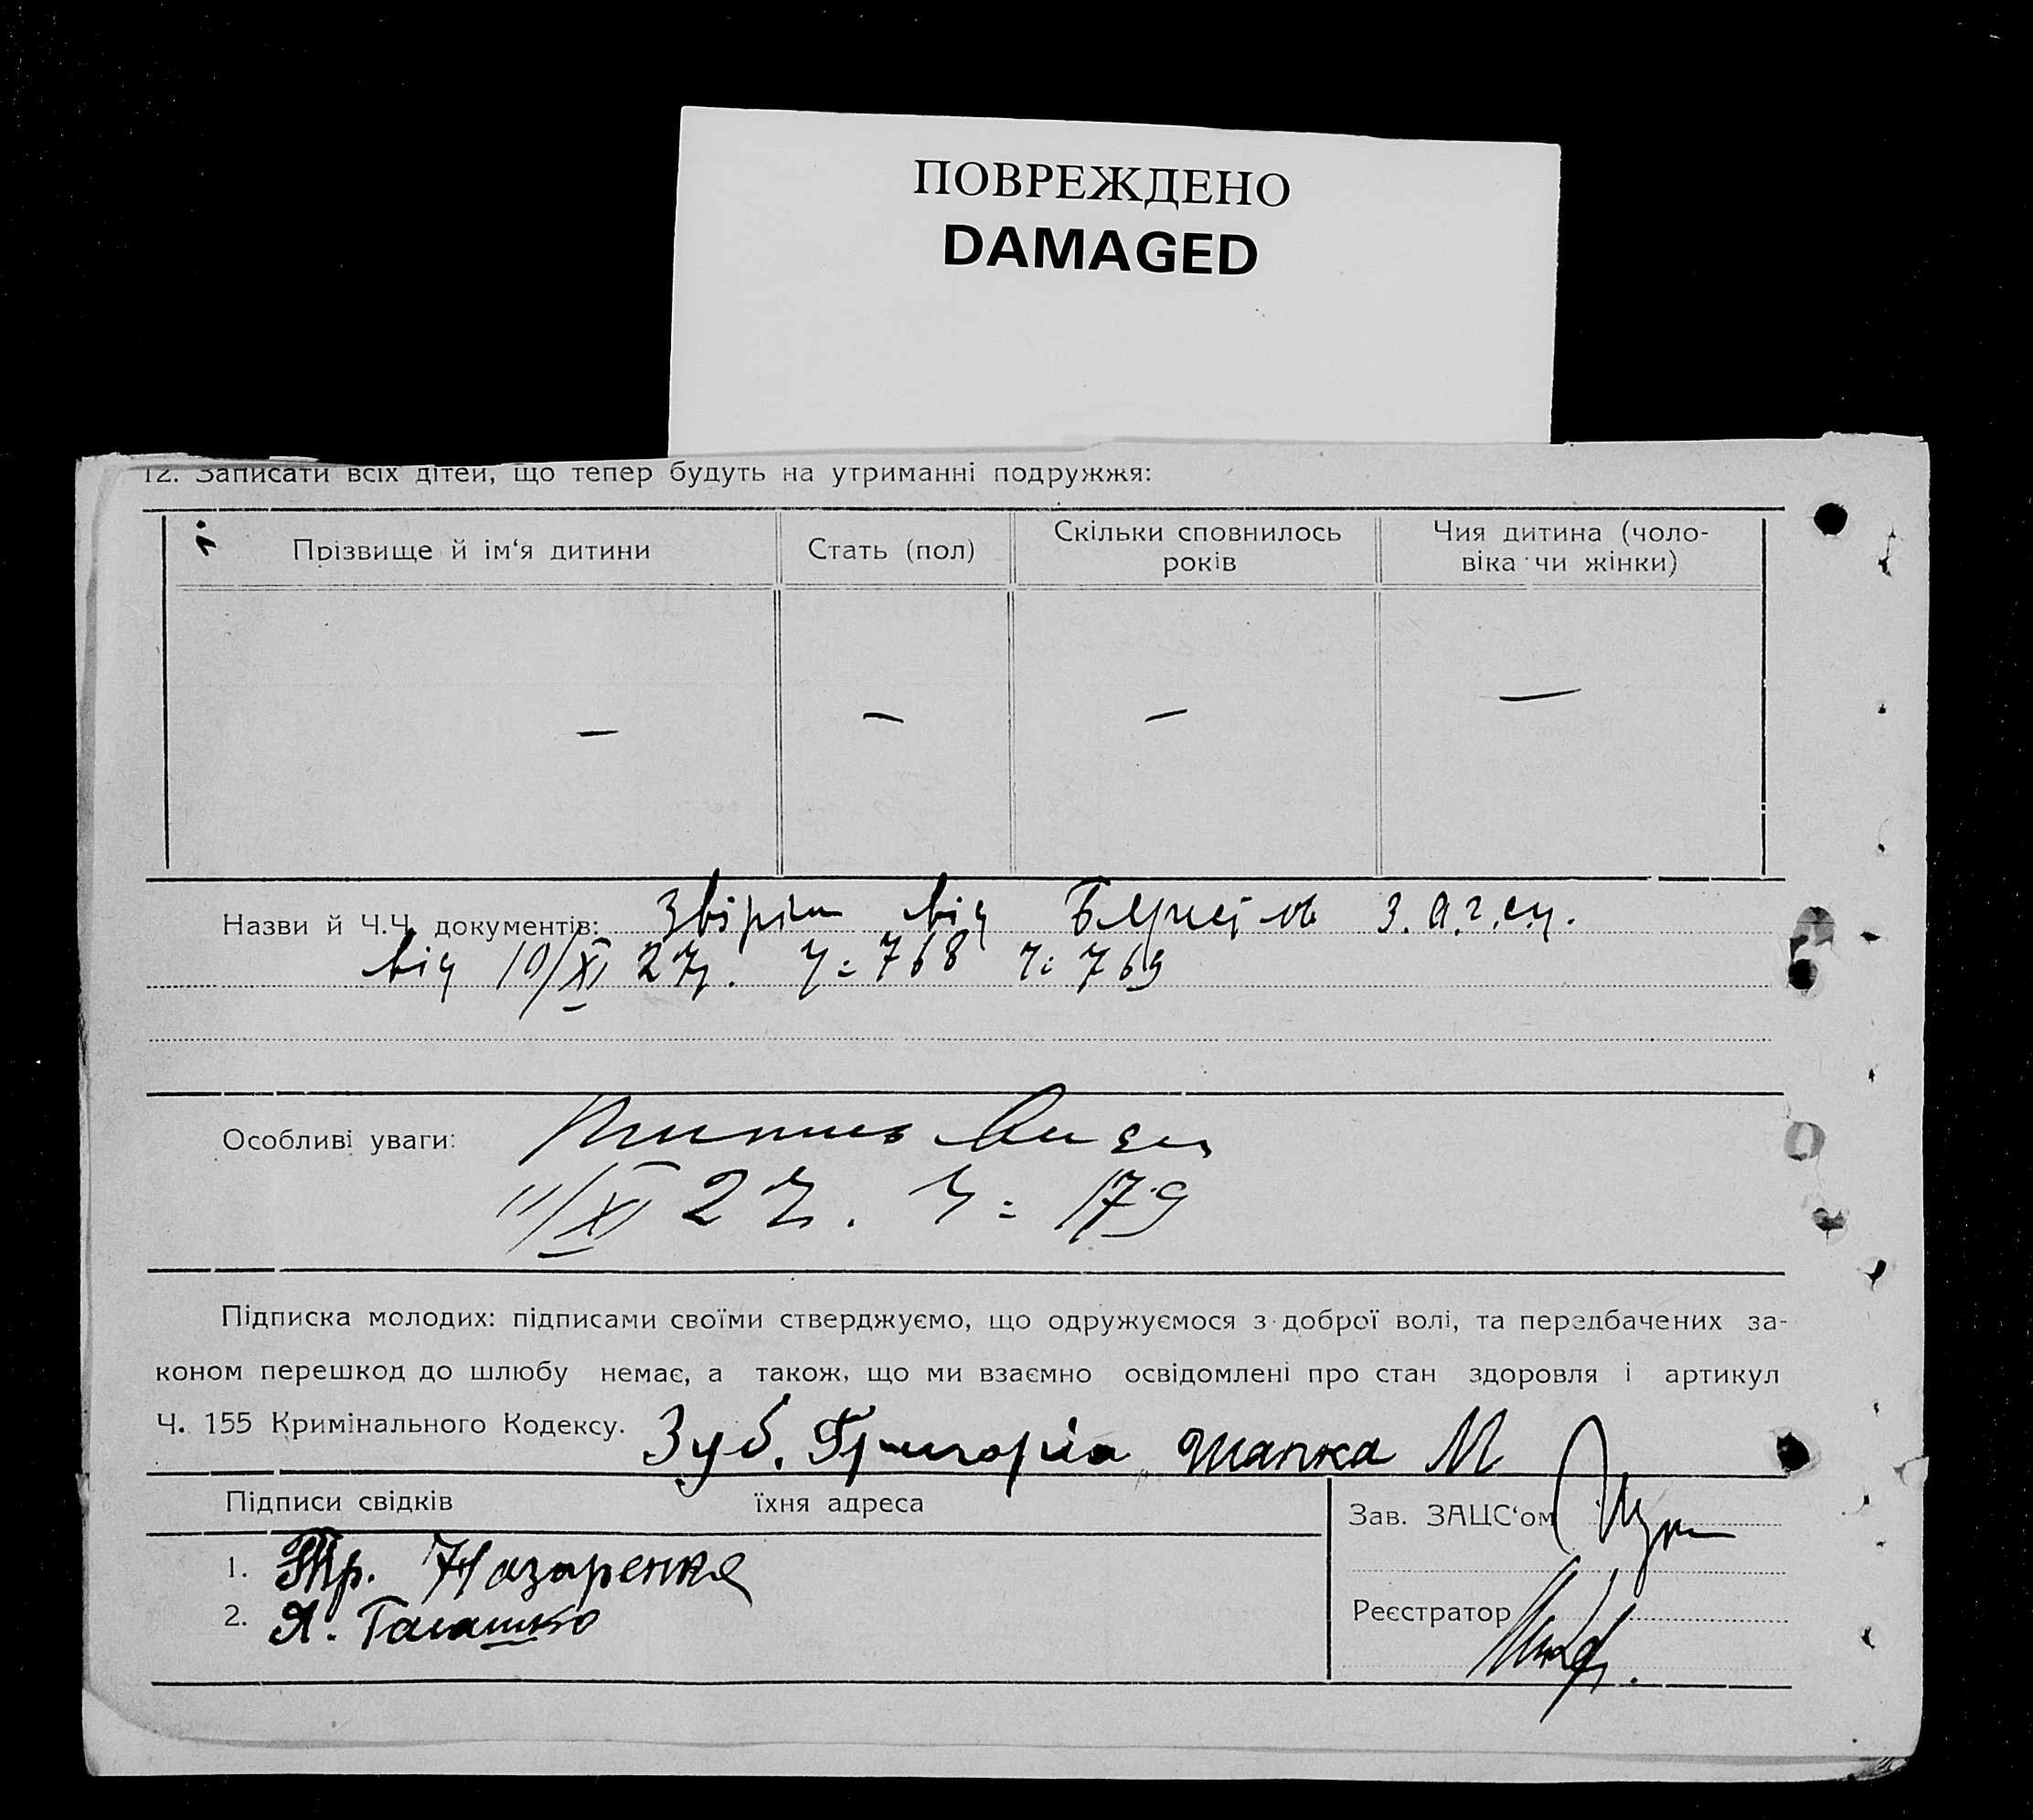 ПОВРЕЖДЕНО
DAMAGED
12. Записати всіх дітей, що тепер будуть на утриманні подружжя:
Прізвище й ім'я дитини
Стать (пол)
Скільки сповнилось
років
Чия дитина (чоло-
віка чи жінки)
— — — —
Назви й Ч.Ч. документів: від
від 10/XI 27р. ч: 768 ч: 769
Особливі уваги:
11/XI 27. ч: 179
Підписка молодих: підписами своїми стверджуємо, що одружуємося з доброї волі, та передбачених за-
коном перешкод до шлюбу немає, а також, що ми взаємно освідомлені про стан здоровля і артикул
Ч. 155 Кримінального Кодексу. Зуб. Григорій Шапка М
Підписи свідків їхня адреса
Зав. ЗАЦС'ом
1. Назаренко
2. Я. Галашко
Реєстратор